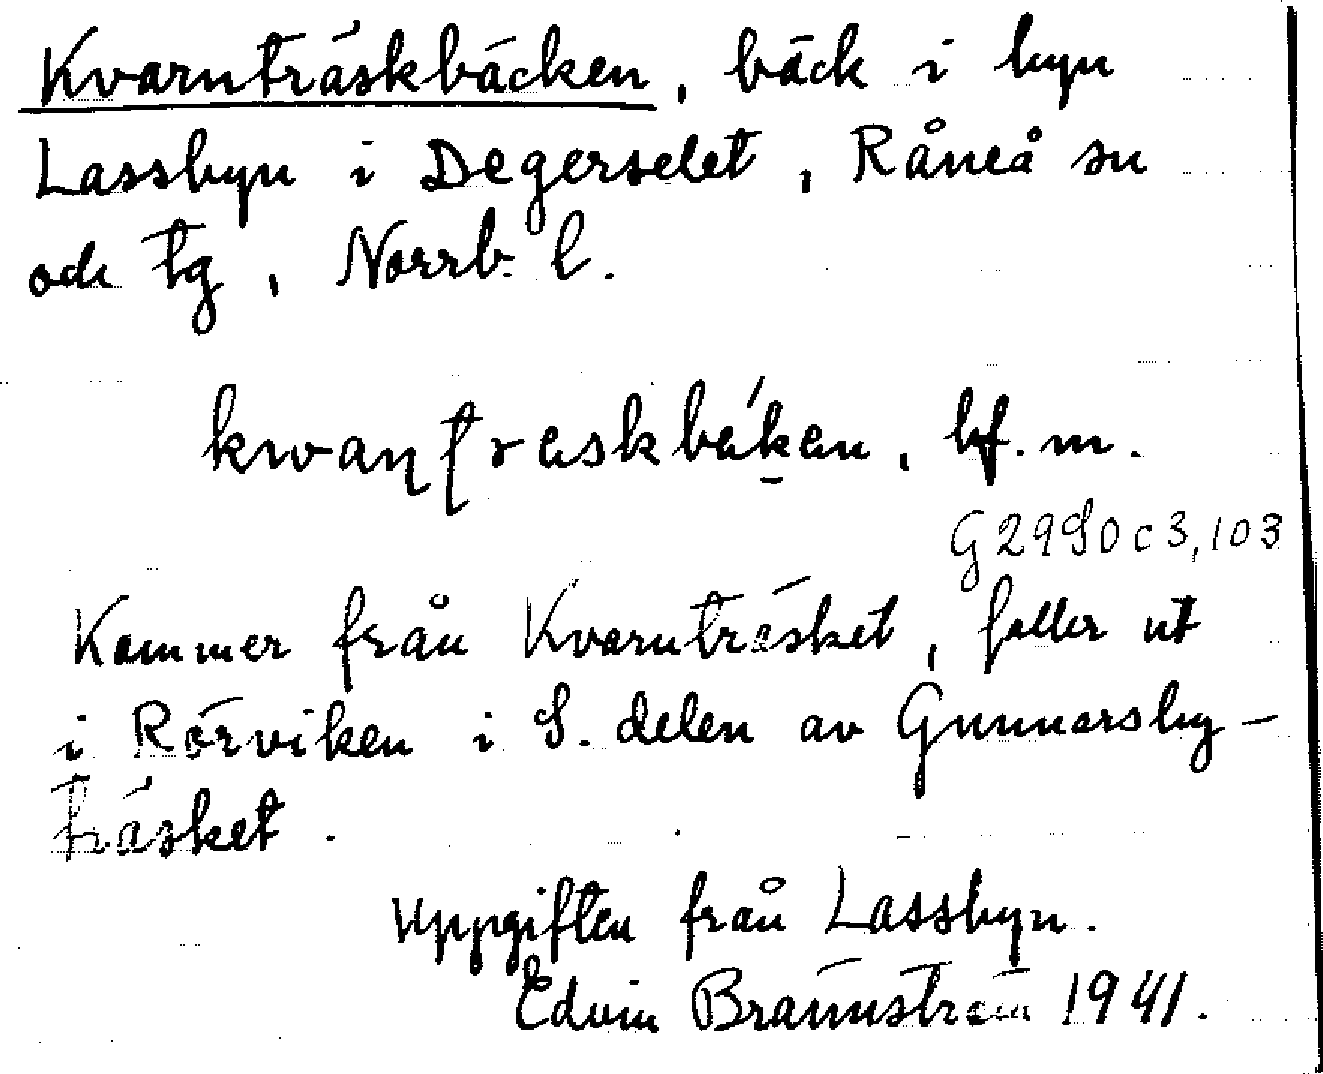 Kvarnträskbäcken, bäck i byn
Lassbyn i Degerselet, Råneå sn
och tg, Norrb. l.
kwaɳʈraskbákan, bf. m.
G2990c3,103
Kommer från Kvarnträsket, faller ut
i Rörviken i S. delen av Gunnarsby-
träsket.
Uppgiften från Lassbyn.
Edvin Brännström 1941.